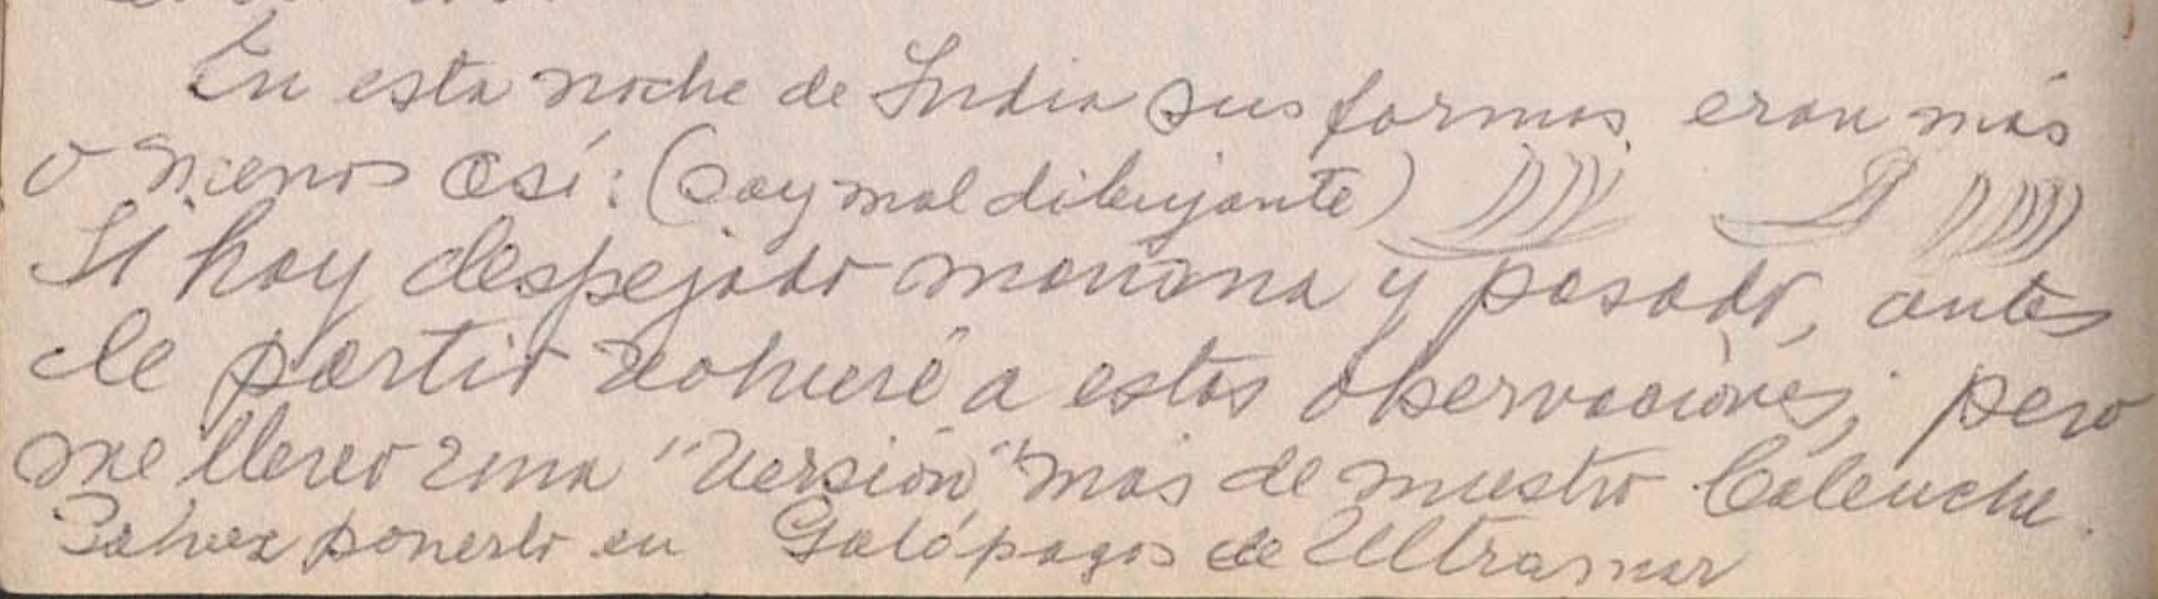 En esta noche de India sus formas eran más
o menos así: (Soy mal dibujante)
Si hay despejado mañana y pasado, antes
de partir volveré a estas observaciones, pero
me llevo una "versión" más de nuestro Caleuche.
Talvez ponerlo en Galápagos de Ultramar